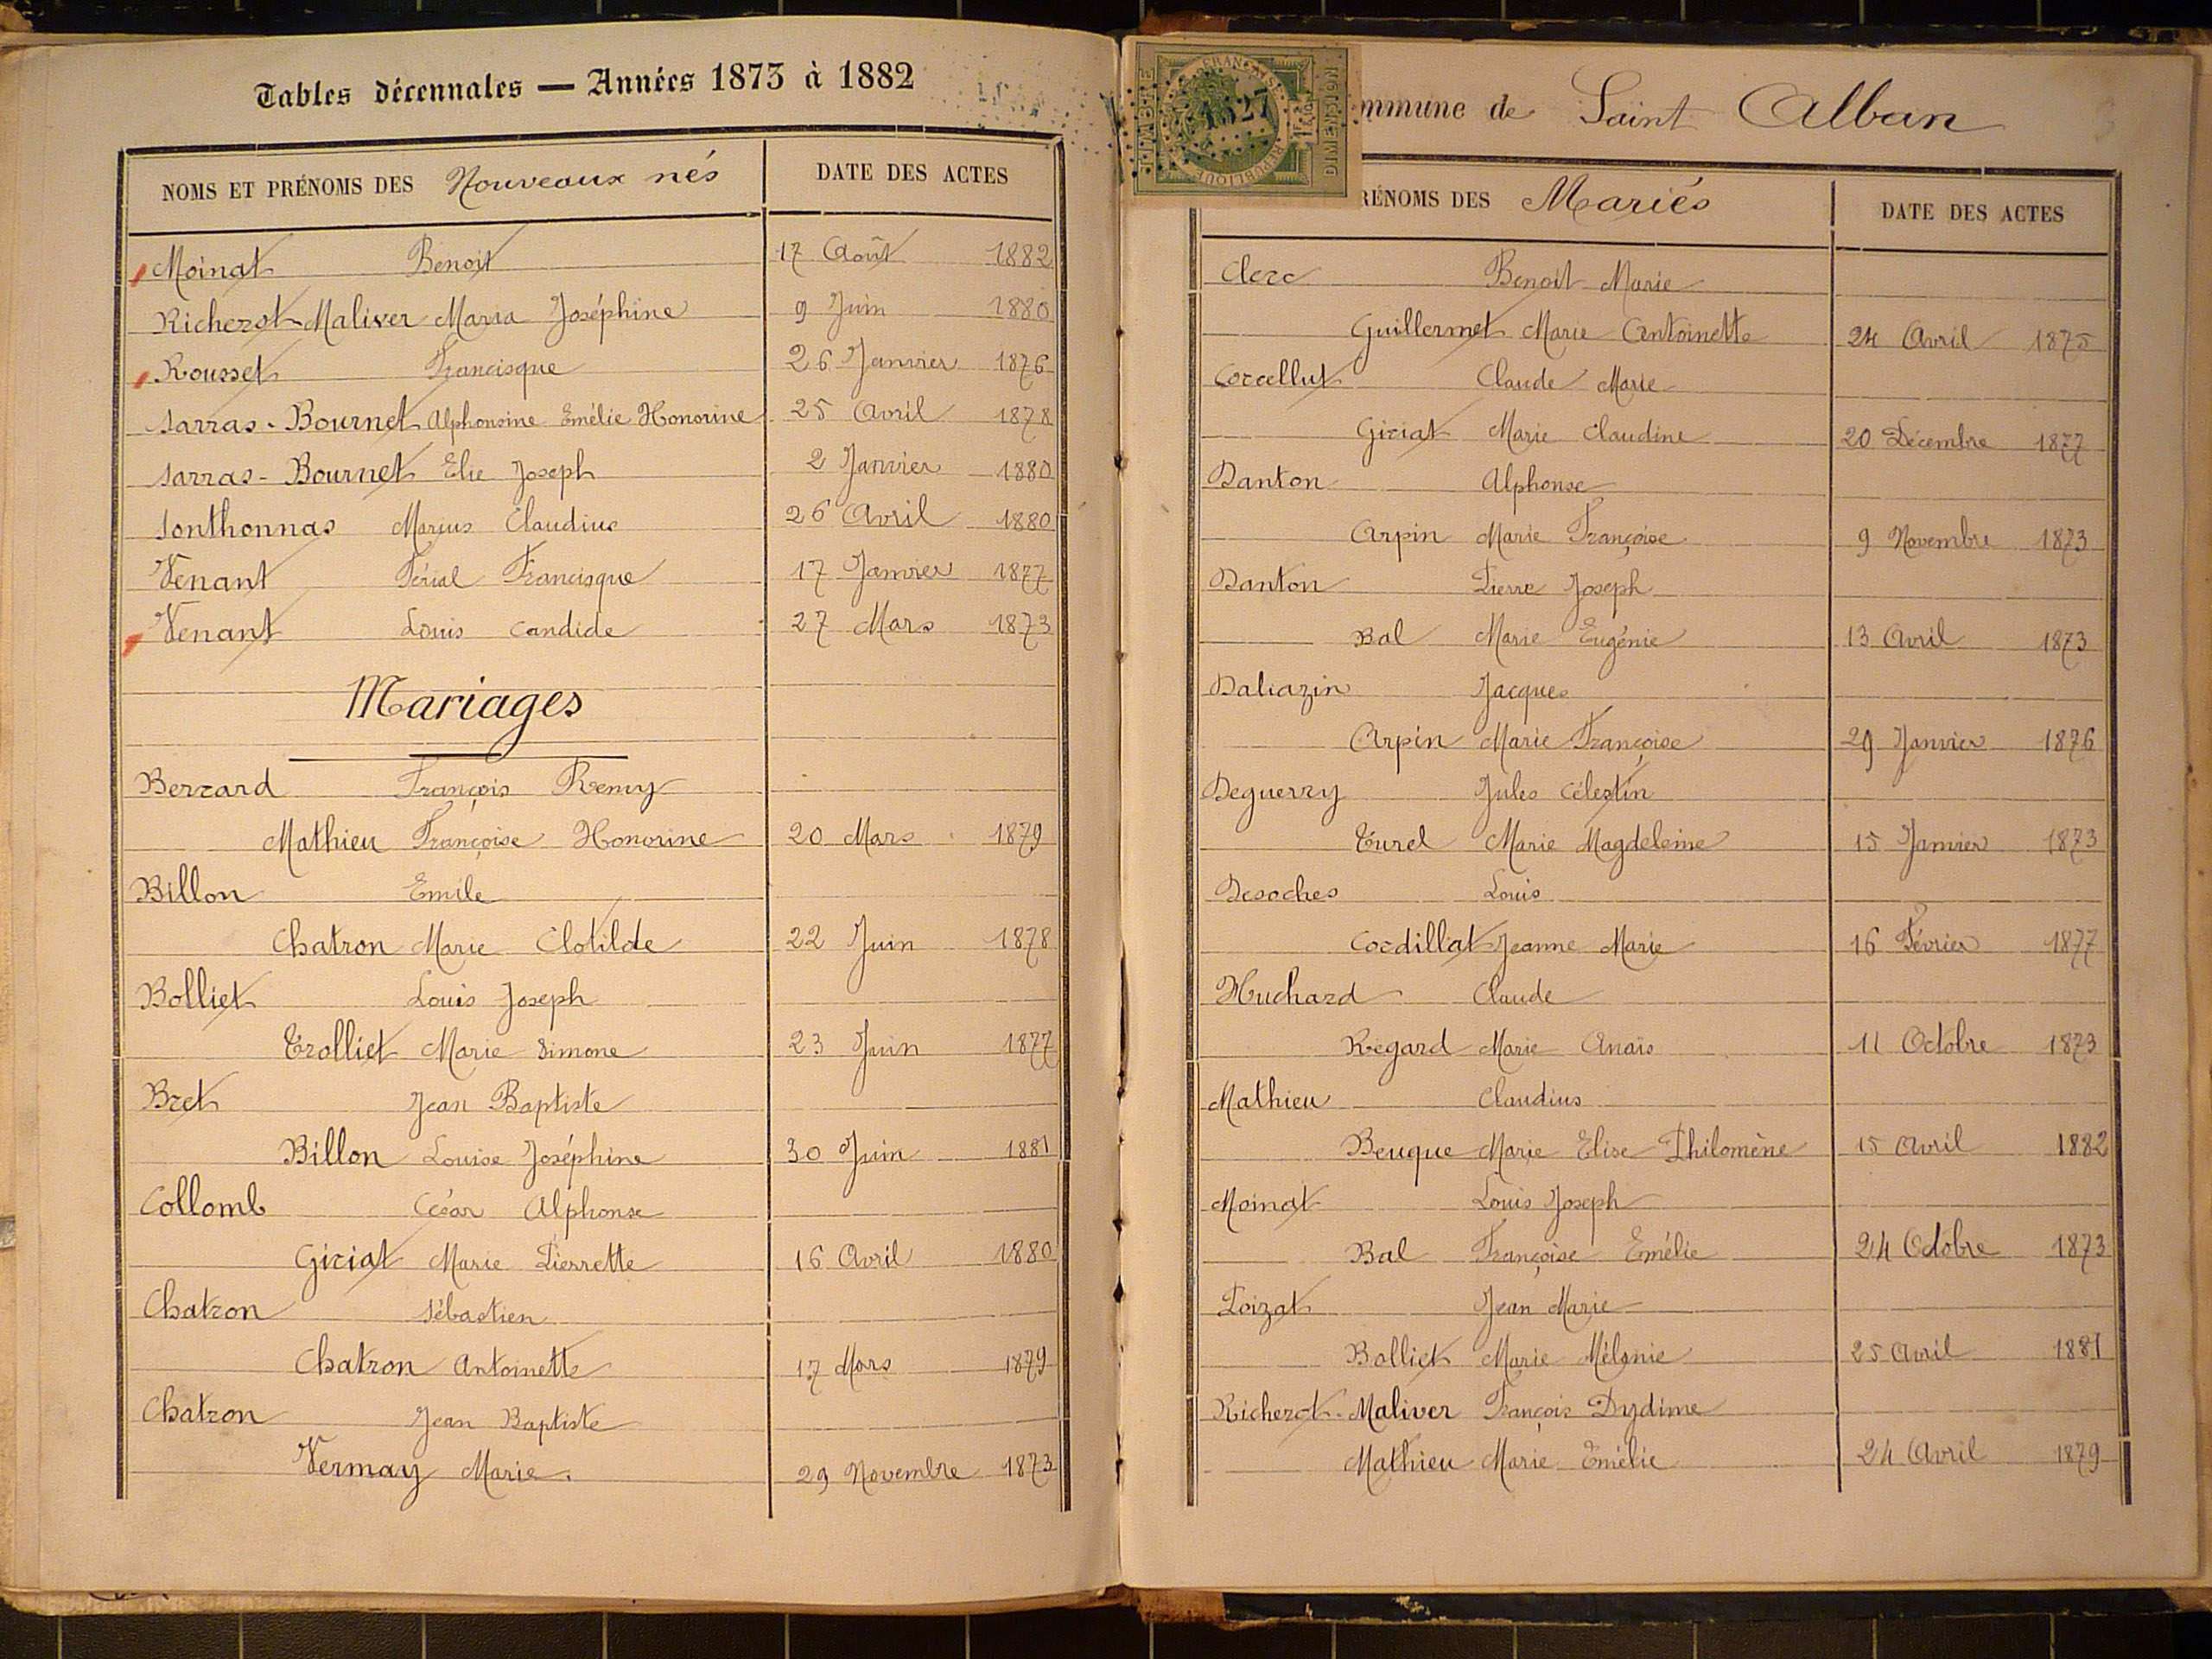 Tables décennales — Années 1873 à 1882
NOMS ET PRÉNOMS DES Nouveaux nés DATE DES ACTES
Moinat Benoit 17 Août 1882
Richerot-Maliver Maria Joséphine 9 Juin 1880
Rousset Francisque 26 Janvier 1876
Sarras-Bournet Alphonsine Emélie Honorine 25 Avril 1878
Sarras-Bournet Elie Joseph 2 Janvier 1880
Sonthonnas Marius Claudius 26 Avril 1880
Venant Francisque 17 Janvier 1877
Venant Louis Candide 27 Mars 1873
Mariages
Berrard François Remy
Mathieu Françoise Honorine 20 Mars 1879
Billon Emile
Chatron Marie Clotilde 22 Juin 1878
Bolliet Louis Joseph
Trolliet Marie Simone 23 Juin 1877
Bret Jean Baptiste
Billon Louise Joséphine 30 Juin 1881
Collomb César Alphonse
Giriat Marie Pierrette 16 Avril 1880
Chatron Sébastien
Chatron Antoinette 17 Mars 1879
Chatron Jean Baptiste
Vermay Marie. 29 Novembre 1873
TIMBRE FRANÇAISE RÉPUBLIQUE DIMENSION
mmune de Saint Alban
RÉNOMS DES Mariés DATE DES ACTES
Clerc Benoit Marie
Guillermet Marie Antoinette 24 Avril 1875
Corcellut Claude Marie
Giriat Marie Claudine 20 Décembre 1877
Danton Alphonse
Arpin Marie Françoise 9 Novembre 1873
Danton Pierre Joseph
Bal Marie Eugénie 13 Avril 1873
Daliazin Jacques
Arpin Marie Françoise 29 Janvier 1876
Deguerry Jules Célestin
Turel Marie Magdeleine 15 Janvier 1873
Desoches Louis
Cordillat Jeanne Marie 16 Février 1877
Huchard Claude
Régard Marie Anaïs 11 Octobre 1873
Mathieu Claudius
Beuque Marie Elise Philomène 15 Avril 1882
Moinat Louis Joseph
Bal Françoise Emélie 24 Octobre 1873
Loizat Jean Marie
Bolliet Marie Mélanie 25 Avril 1881
Richerot-Maliver François Dydime
Mathieu Marie Emélie 24 Avril 1879